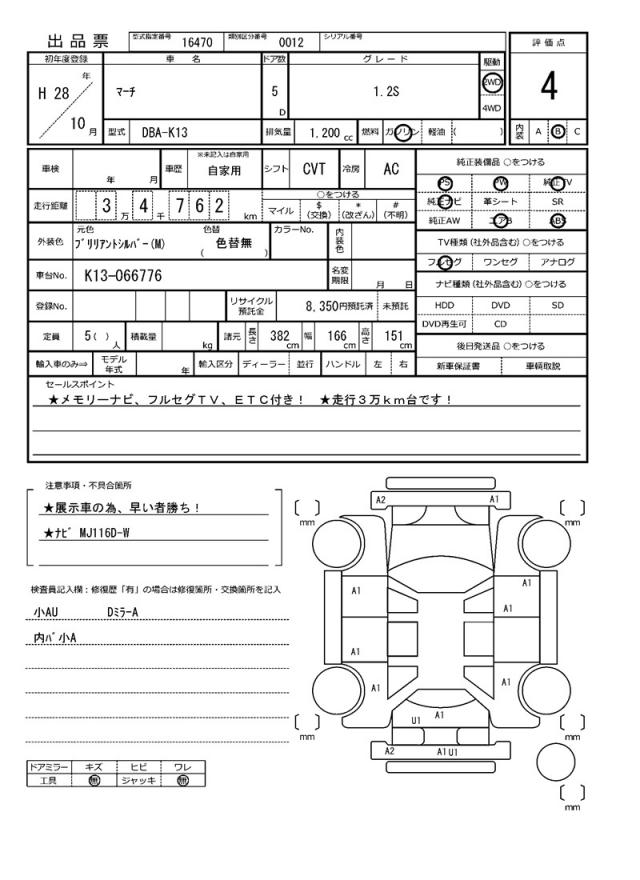 出品票 型式指定番号 16470 類別区分番号 0012 シリアル番号
評価点
4
初年度登録 車名 ドア数 グレード 駆動
H 28 年 10 月
マーチ
5 D
1.2S
2WD
4WD
型式 DBA-K13 排気量 1.200 cc 燃料 ガソリン 軽油 ( )
内装 A B C
車検 年 月 車歴 ※未記入は自家用 自家用 シフト CVT 冷房 AC
走行距離 3 万 4 千 7 6 2 km
○をつける
マイル $ (交換) * (改ざん) # (不明)
外装色 元色 ﾌﾞﾘﾘｱﾝﾄｼﾙﾊﾞｰ(M) 色替 ( 色替無 ) カラーNo. 内装色
車台No. K13-066776 名変期限 月 日
登録No. リサイクル預託金 8,350円預託済 未預託
定員 5( ) 人 積載量 kg 諸元 長さ 382 cm 幅 166 cm 高さ 151 cm
輸入車のみ⇒ モデル年式 年 輸入区分 ディーラー 並行 ハンドル 左 右
純正装備品 ○をつける
PS PW 純正TV
純正ナビ 革シート SR
純正AW エアB ABS
TV種類 (社外品含む) ○をつける
フルセグ ワンセグ アナログ
ナビ種類 (社外品含む) ○をつける
HDD DVD SD
DVD再生可 CD
後日発送品 ○をつける
新車保証書 車輌取説
セールスポイント
★メモリーナビ、フルセグＴＶ、ＥＴＣ付き！ ★走行３万ｋｍ台です！
注意事項・不具合箇所
★展示車の為、早い者勝ち！
★ﾅﾋﾞ MJ116D-W
検査員記入欄：修復歴「有」の場合は修復箇所・交換箇所を記入
小AU DﾐﾗｰA
内ﾊﾞ小A
ドアミラー キズ ヒビ ワレ
工具 無 ジャッキ 無
A2 A1
[ ] mm [ ] mm
A1 A1
A1
A1 A1
U1 A1
[ ] mm [ ] mm
A2 A1 U1
[ ] mm